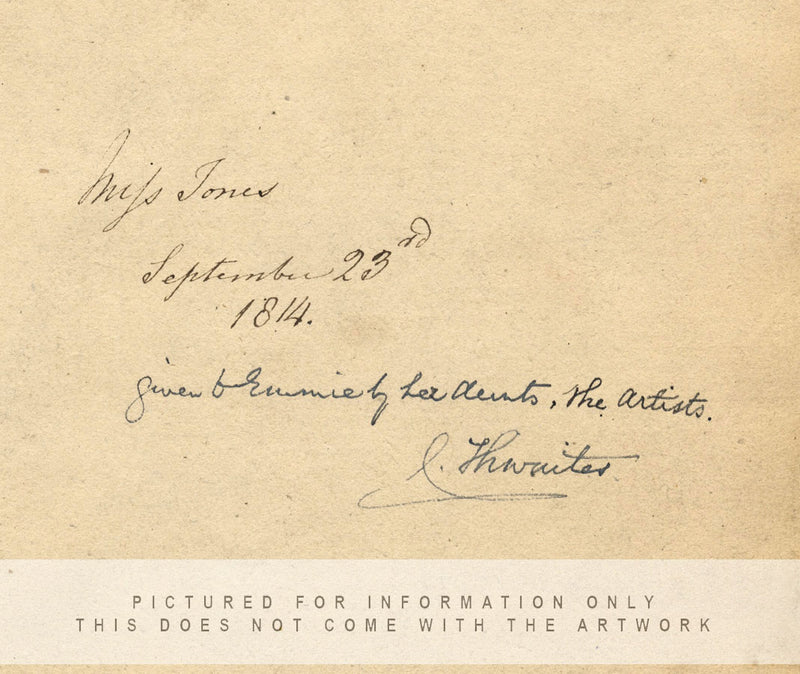 Miſs Jones
September 23rd
1814.
given to Emmie by her Aunts, the Artists.
C. Thwaites
PICTURED FOR INFORMATION ONLY
THIS DOES NOT COME WITH THE ARTWORK